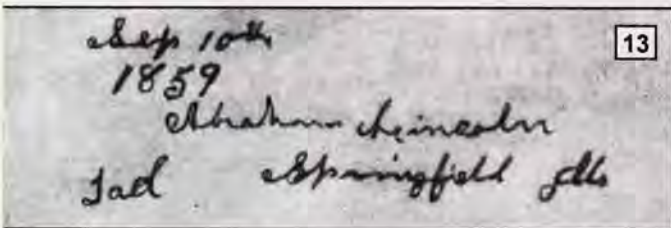 Sep 10th
13
1859
Abraham Lincoln
Tad Springfield Ills